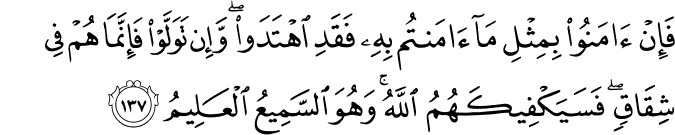 فَإِنۡ ءَامَنُواْ بِمِثۡلِ مَآ ءَامَنتُم بِهِۦ فَقَدِ ٱهۡتَدَواْۖ وَّإِن تَوَلَّوۡاْ فَإِنَّمَا هُمۡ فِي
شِقَاقٖۖ فَسَيَكۡفِيكَهُمُ ٱللَّهُۚ وَهُوَ ٱلسَّمِيعُ ٱلۡعَلِيمُ ١٣٧